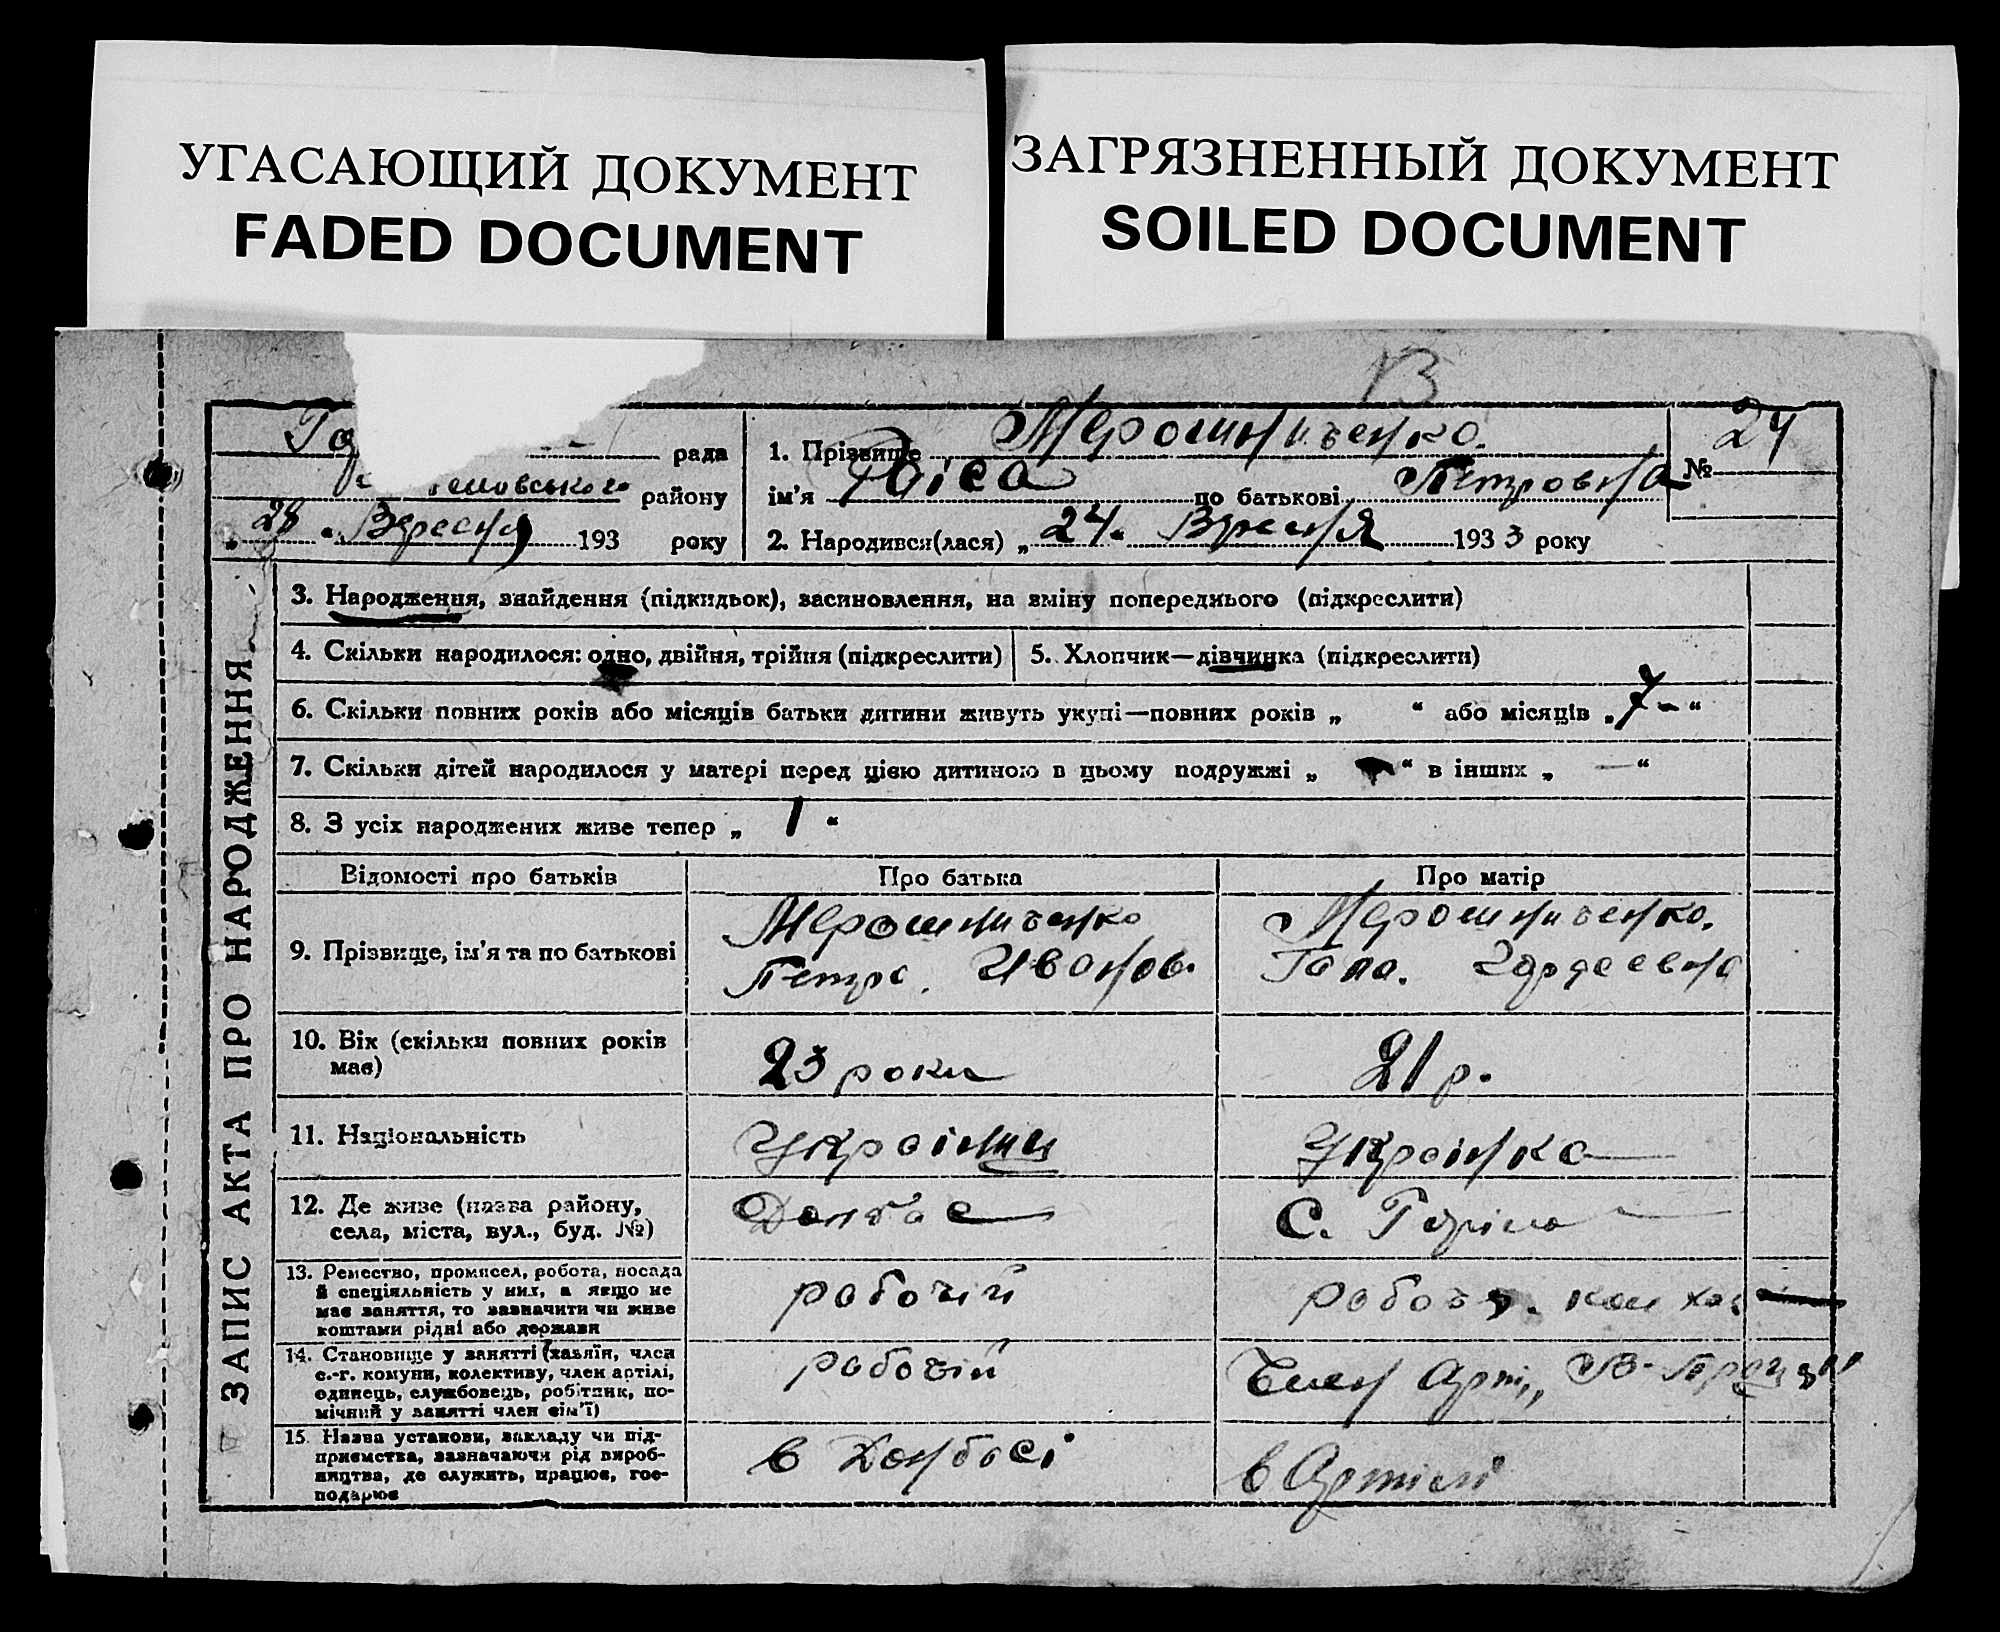 УГАСАЮЩИЙ ДОКУМЕНТ
FADED DOCUMENT
ЗАГРЯЗНЕННЫЙ ДОКУМЕНТ
SOILED DOCUMENT
13
рада
району
„28“ Вересня 193 року
1. Прізвище Мерошниченко
ім'я Раіса по батькові Петровна
№ 24
2. Народився(лася) „24“ Вересня 1933 року
ЗАПИС АКТА ПРО НАРОДЖЕННЯ
3. Народження, знайдення (підкидьок), засиновлення, на зміну попереднього (підкреслити)
4. Скільки народилося: одно, двійня, трійня (підкреслити)
5. Хлопчик—дівчинка (підкреслити)
6. Скільки повних років або місяців батьки дитини живуть укупі—повних років „ “ або місяців „7-“
7. Скільки дітей народилося у матері перед цією дитиною в цьому подружжі „ “ в інших „—“
8. З усіх народжених живе тепер „1“
Відомості про батьків
Про батька
Про матір
9. Прізвище, ім'я та по батькові
Мерошниченко
Петро. Иванов.
Мерошниченко.
Гапа. Гордеевна
10. Вік (скільки повних років
має)
23 роки
21 р.
11. Національність
Українка
12. Де живе (назва району,
села, міста, вул., буд. №)
Донбас
С.
13. Ремество, промисел, робота, посада
й спеціяльність у них, а якщо не
має заняття, то зазначити чи живе
коштами рідні або держави
робочій
робоч.
14. Становище у занятті (хазяїн, член
с.-г. комуни, колективу, член артілі,
одинець, службовець, робітник, по-
мічний у занятті член сім'ї)
робочій
Член Арт,,
15. Назва установи, закладу чи під-
приємства, зазначаючи рід вироб-
ництва, де служить, працює, гос-
подарює
в Донбасі
в Артілі